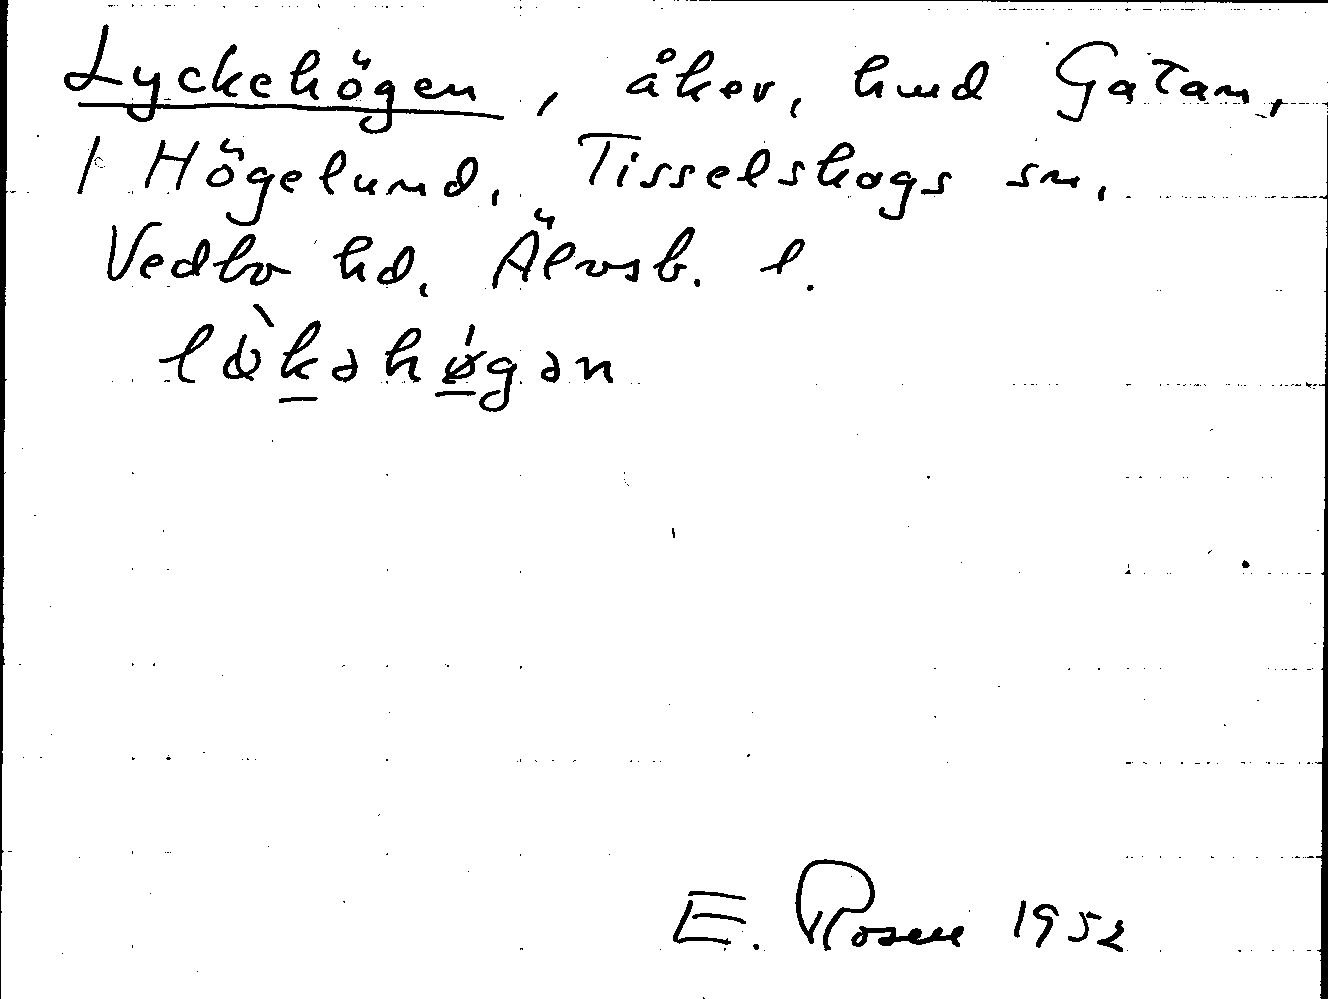 Lyckehögen, åker, hmd Gatan,
1 Högelund, Tisselskogs sn,
Vedbo hd, Älvsb. l.
lø̀kəhǿgən
E. Rosen 1952